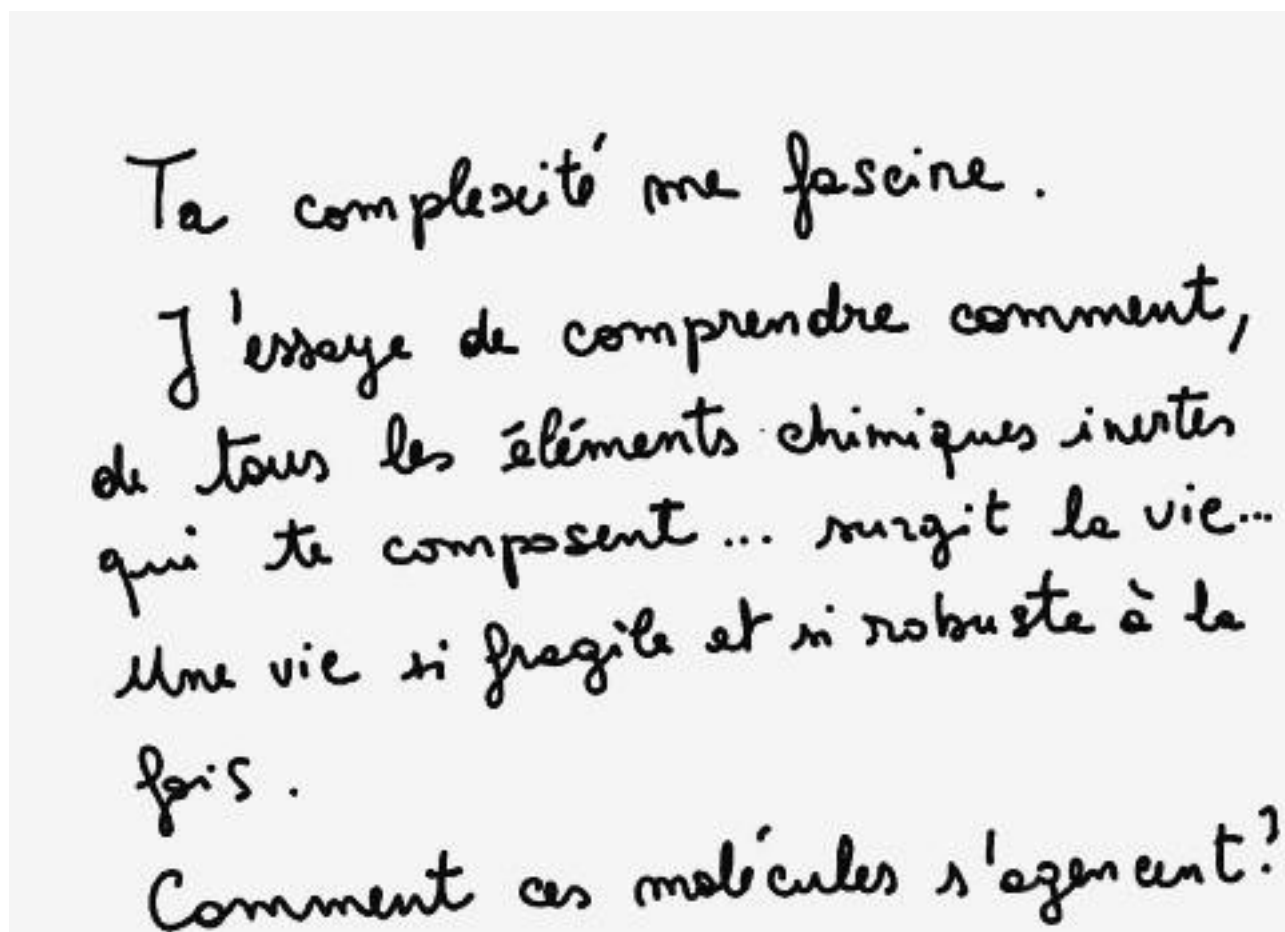 Ta complexité me fascine.
J'essaye de comprendre comment,
de tous les éléments chimiques inertes
qui te composent... surgit la vie...
Une vie si fragile et si robuste à la
fois.
Comment ces molécules s'agencent?